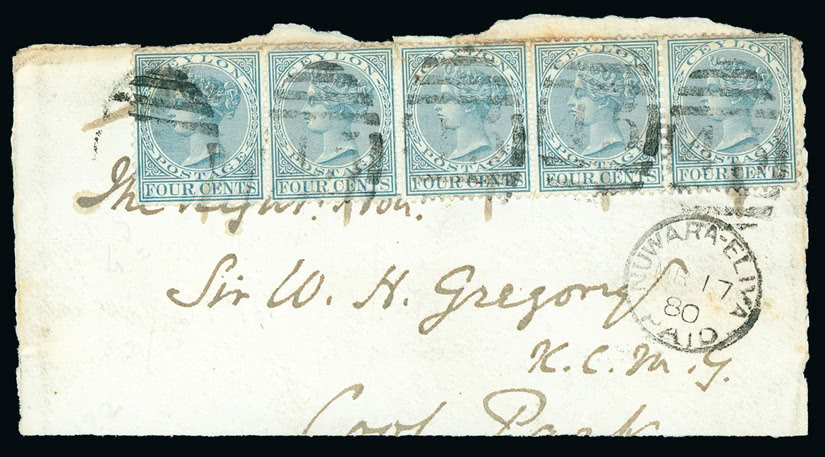 CEYLON CEYLON CEYLON CEYLON CEYLON
POSTAGE POSTAGE POSTAGE POSTAGE POSTAGE
FOUR CENTS FOUR CENTS FOUR CENTS FOUR CENTS FOUR CENTS
The Right. Hon.
Sir W. H. Gregory
K. C. M. G.
Cool Park
NUWARA-ELIYA
17
80
PAID